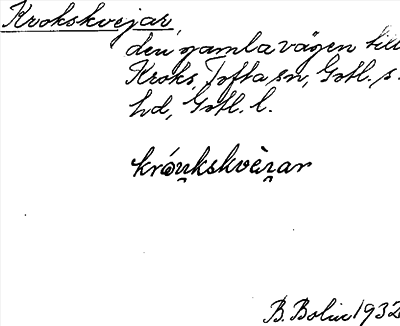 Krokskvejar,
den gamla vägen till
Kroks, Tofta sn, Gotl. s.
hd, Gotl. l.
króu̯kskvèi̯ar
B. Bolin 1932